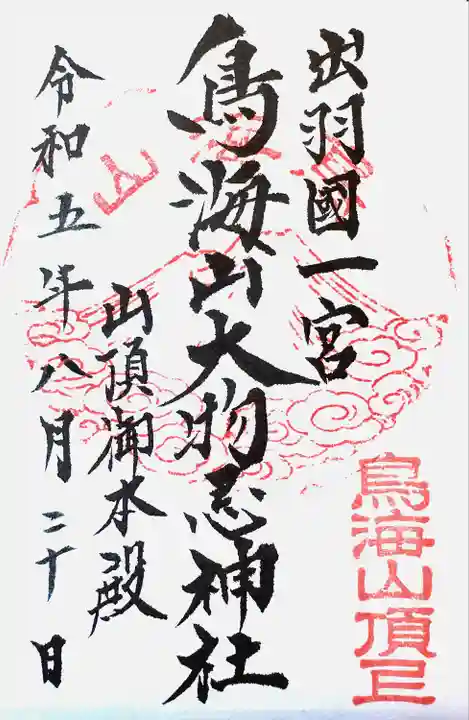 出羽國一宮
鳥海山大物忌神社
山頂御本殿
令和五年八月二十日
鳥海山頂印